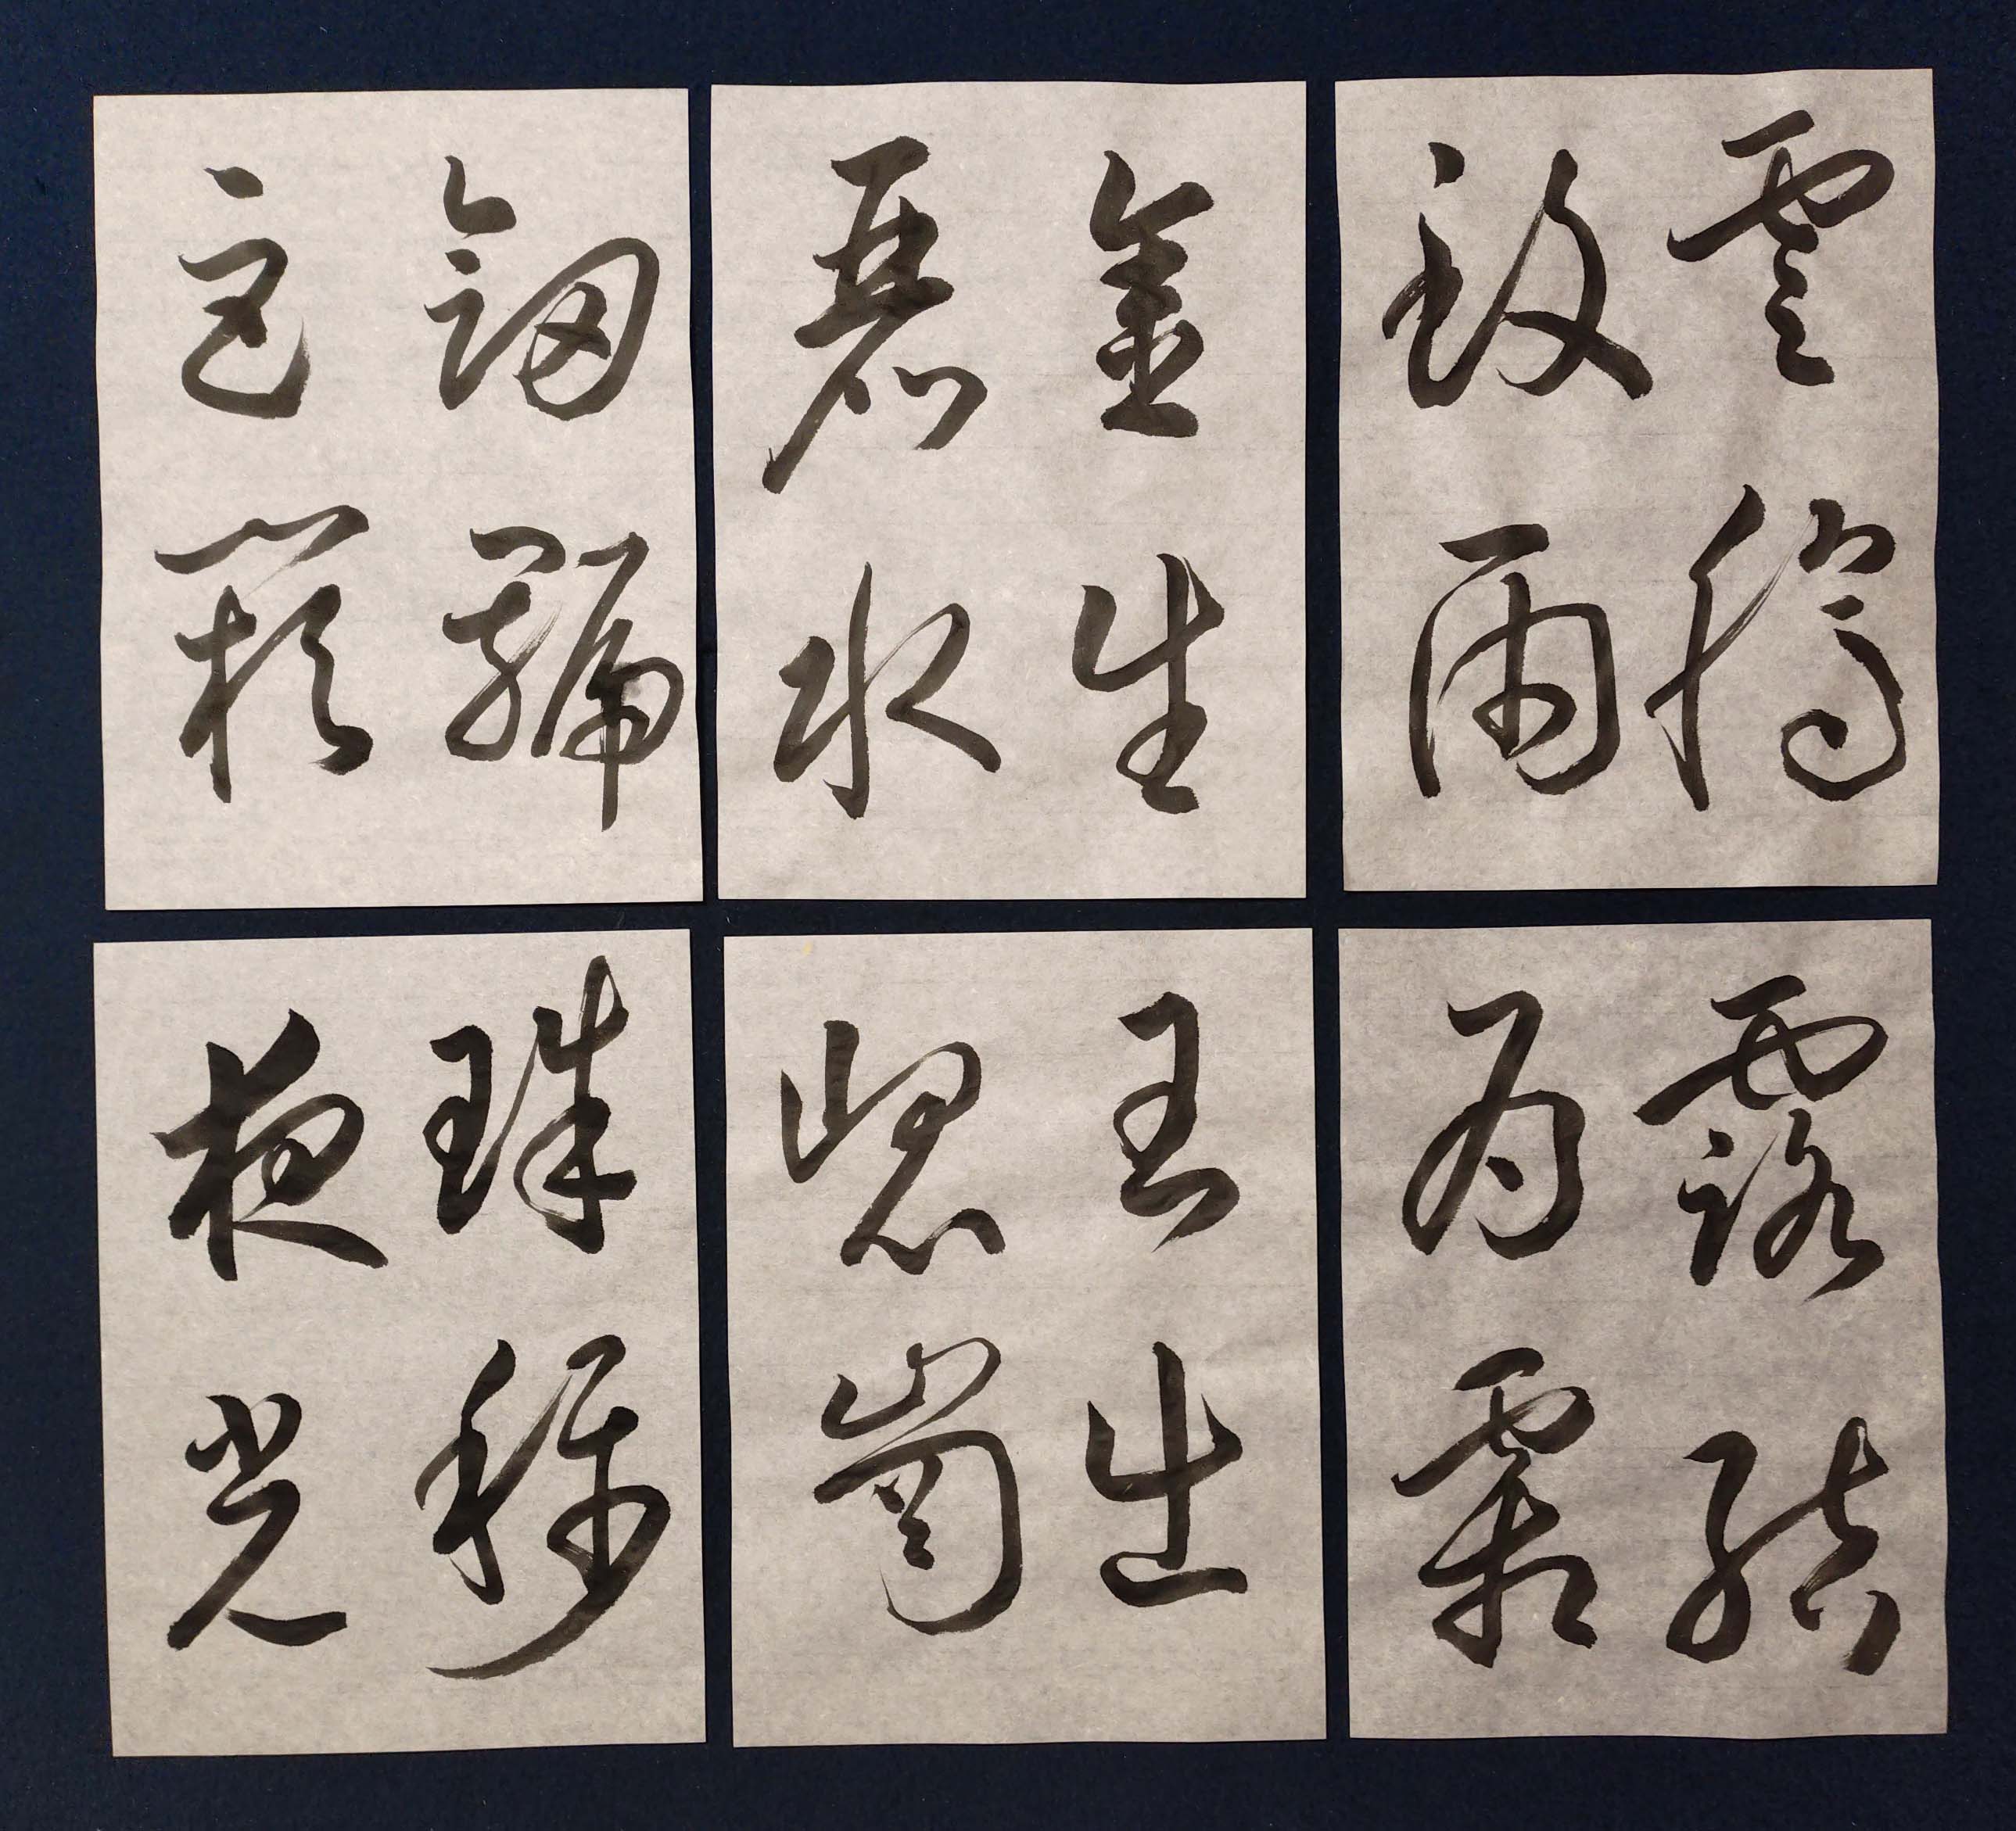 雲騰
致雨
露結
為霜
金生
麗水
玉出
崐崗
劍號
巨闕
珠稱
夜光